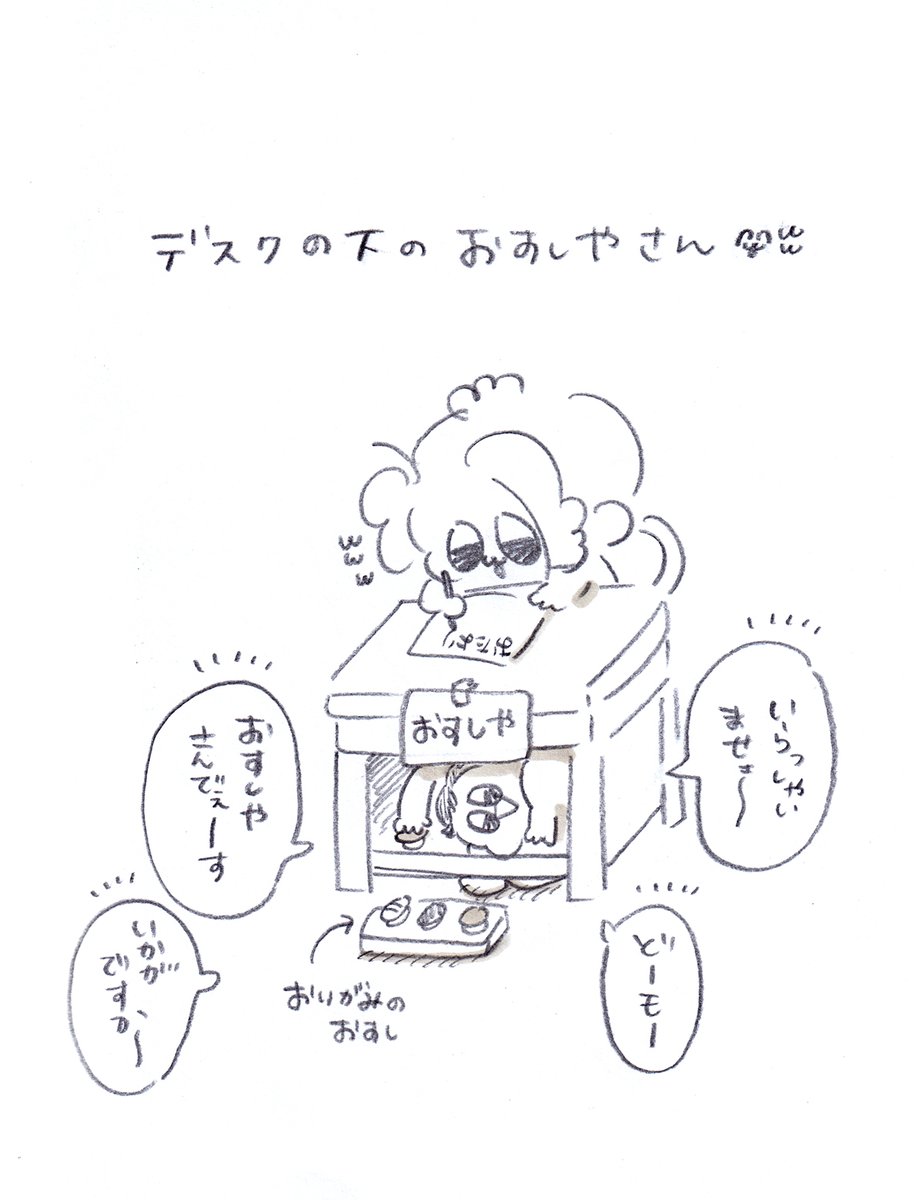 デスクの下のおすしやさん笑ww
www
おたより
おすしや
いらっしゃい
ませェ〜
おすしや
さんでぇーす
いかが
ですかぁ〜
どーモー
おりがみの
おすし